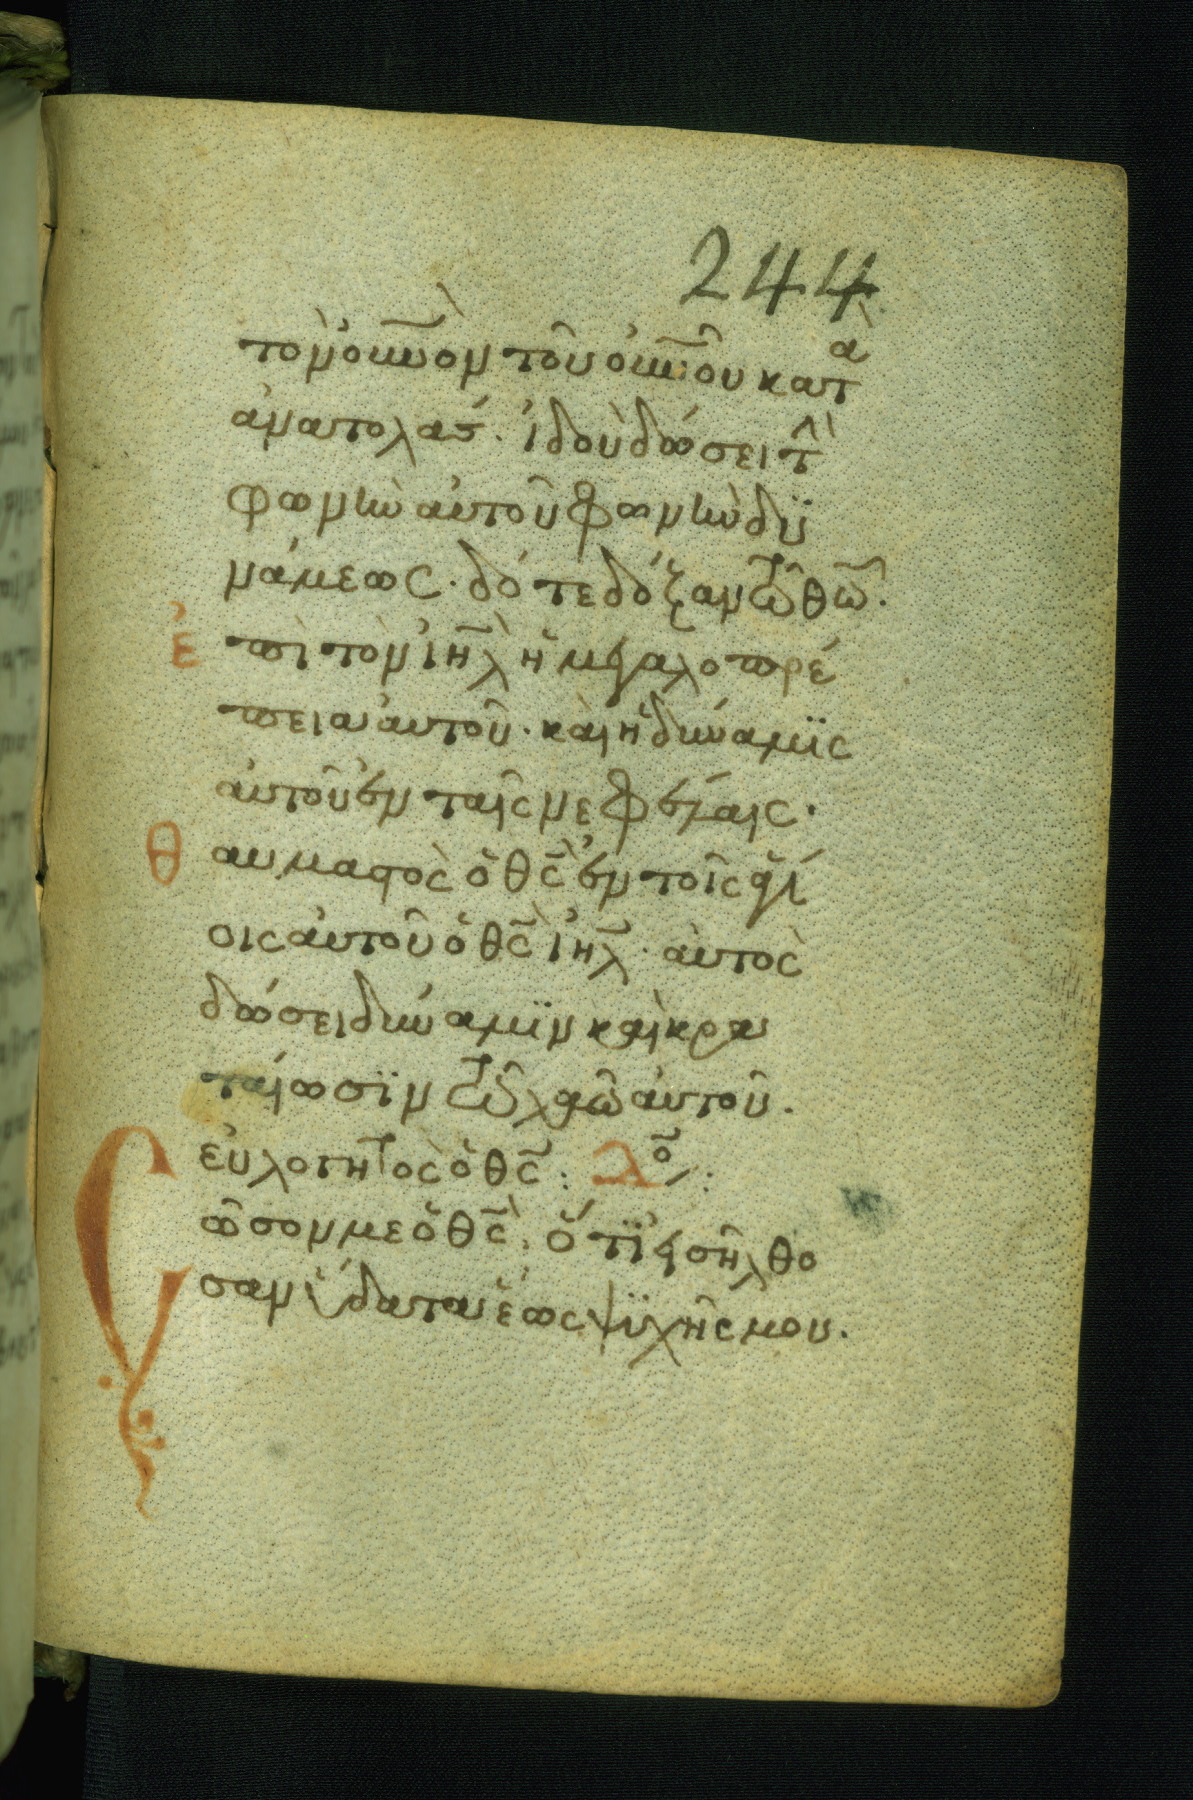 244
τὸν οὐ̅νὸν τοῦ οὐ̅νοῦ κατὰ
ἀνατολάς. ἰδοὺ δώσει τῇ
φωνῇ αὐτοῦ φωνὴν δυ
νάμεως. δότε δόξαν τῷ θ̅ω̅.
Ἐπὶ τὸν ἰη̅λ̅ ἡ μεγαλοπρέ
πεια αὐτοῦ. καὶ ἡ δύναμϊς
αὐτοῦ ἐν ταῖς νεφέλαις.
Θαυμαστὸς ὁ θ̅ς̅ ἐν τοῖς ἁγί
οις αὐτοῦ ὁ θ̅ς̅ ἰη̅λ̅. αὐτὸς
δώσει δύναμϊν καὶ κρα
ταίωσϊν τῷ λαῷ αὐτοῦ.
εὐλογητὸς ὁ θ̅ς̅:
Σῶσον με ὁ θ̅ς̅, ὅτϊ εἰσῆλθο
σαν ὕδατα ἕως ψϋχῆς μου.